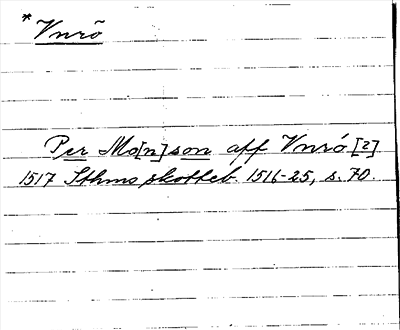 * Vnrö
Per Mo[n]son aff Vnró [2]
1517 Sthms skotteb. 1516-25, s. 70.